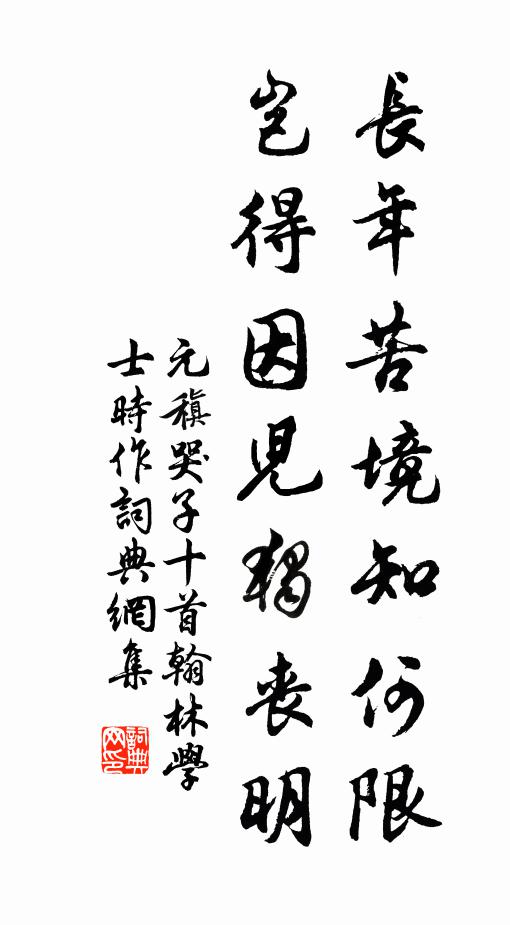 長年苦境知何限
豈得因児獨丧明
元稹哭子十首翰林學
士時作詞典網集
詞典
网印